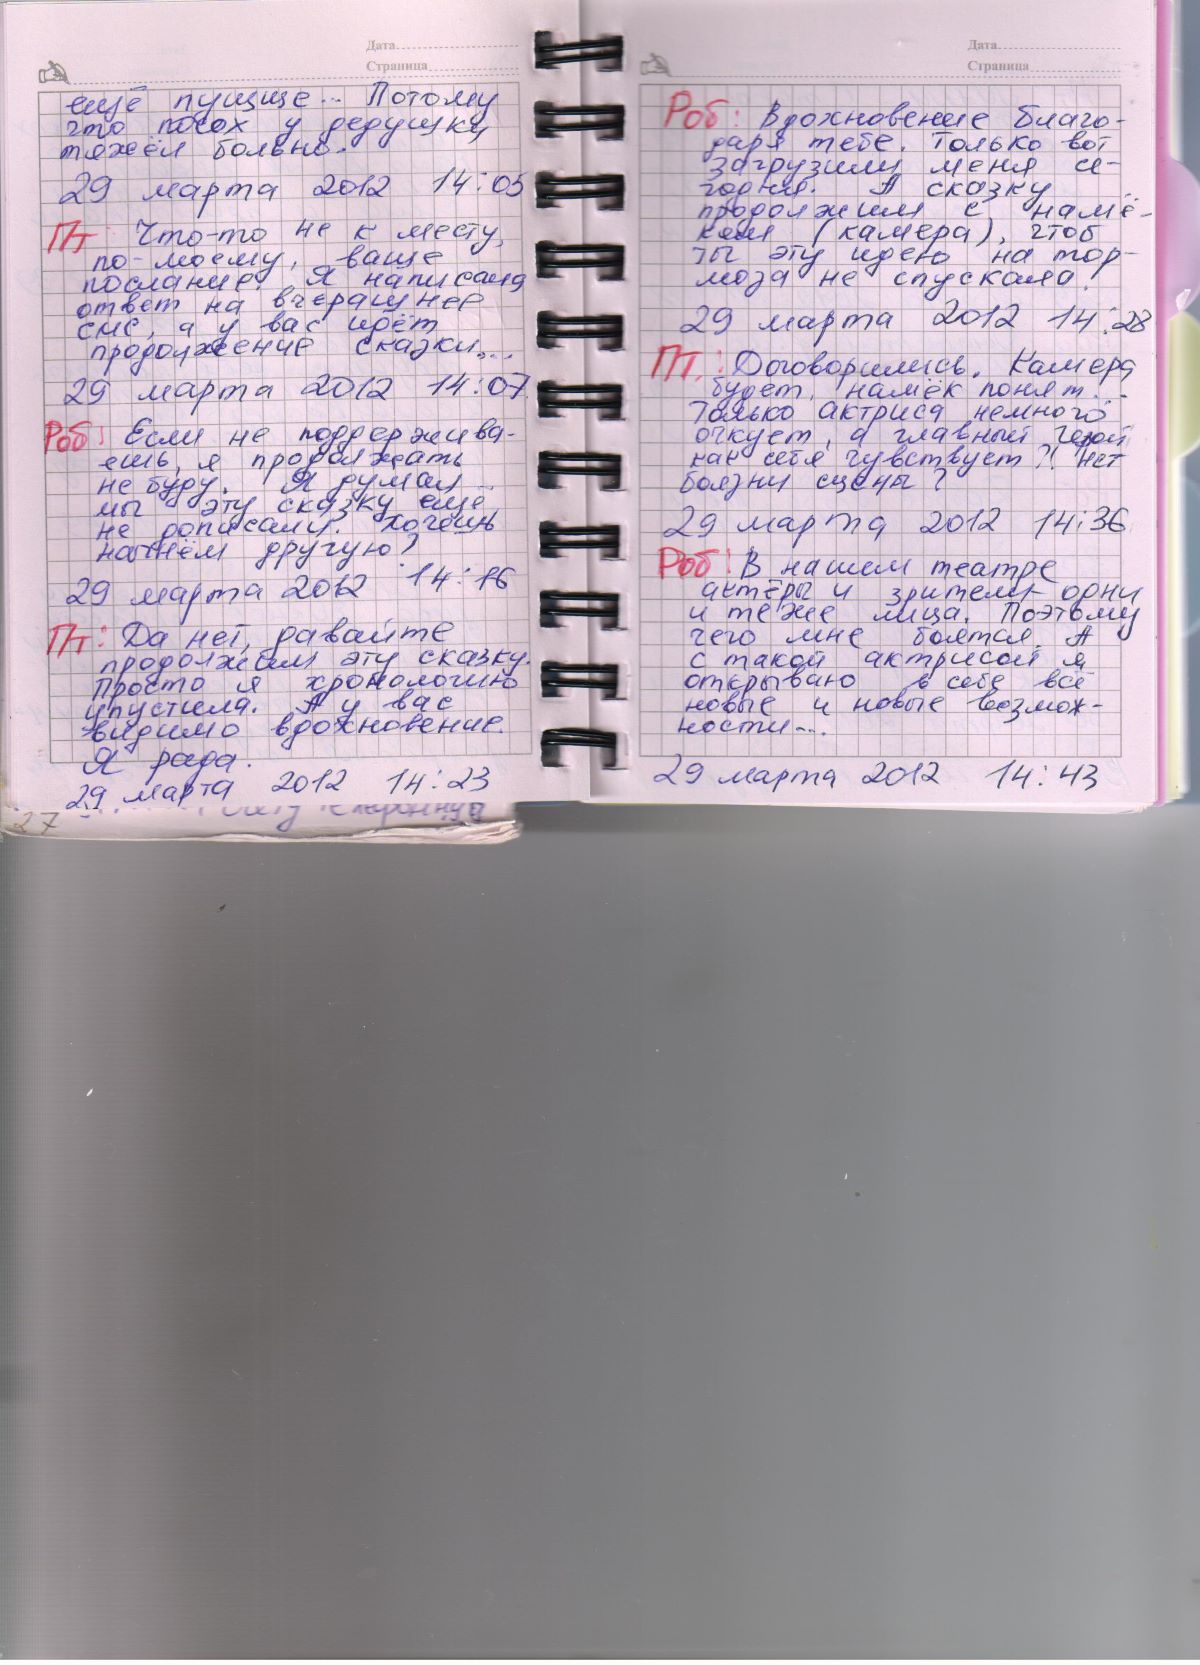 Дата
Страница
ещё пущще... Потому
что посох у дедушки
тяжёл больно.
29 марта 2012 14:05
Пт: Что-то не к месту,
по-моему, ваше
послание. Я написала
ответ на вчерашнее
смс, а у вас идёт
продолжение сказки...
29 марта 2012 14:07
Роб: Если не поддержива-
ешь, я продолжать
не буду. Я думал...
мы эту сказку ещё
не дописали. Хочешь
начнём другую?
29 марта 2012 14:16
Пт: Да нет, давайте
продолжим эту сказку.
Просто я хронологию
упустила. А у вас
видимо вдохновение.
Я рада.
29 марта 2012 14:23
27
Дата
Страница
Роб: Вдохновение благо-
даря тебе. Только вот
загрузили меня се-
годня. А сказку
продолжим с намё-
ком (камера), чтоб
ты эту идею на тор-
моза не спускала!
29 марта 2012 14:28
ПТ.: Договорились. Камера
будет, намёк понят...
Только актриса немного
очкует, а главный герой
как себя чувствует?! Нет
боязни сцены?
29 марта 2012 14:36
Роб: В нашем театре
актёры и зрители - одни
и те же лица. Поэтому
чего мне боятся. А
с такой актрисой я
открываю в себе всё
новые и новые возмож-
ности...
29 марта 2012 14:43